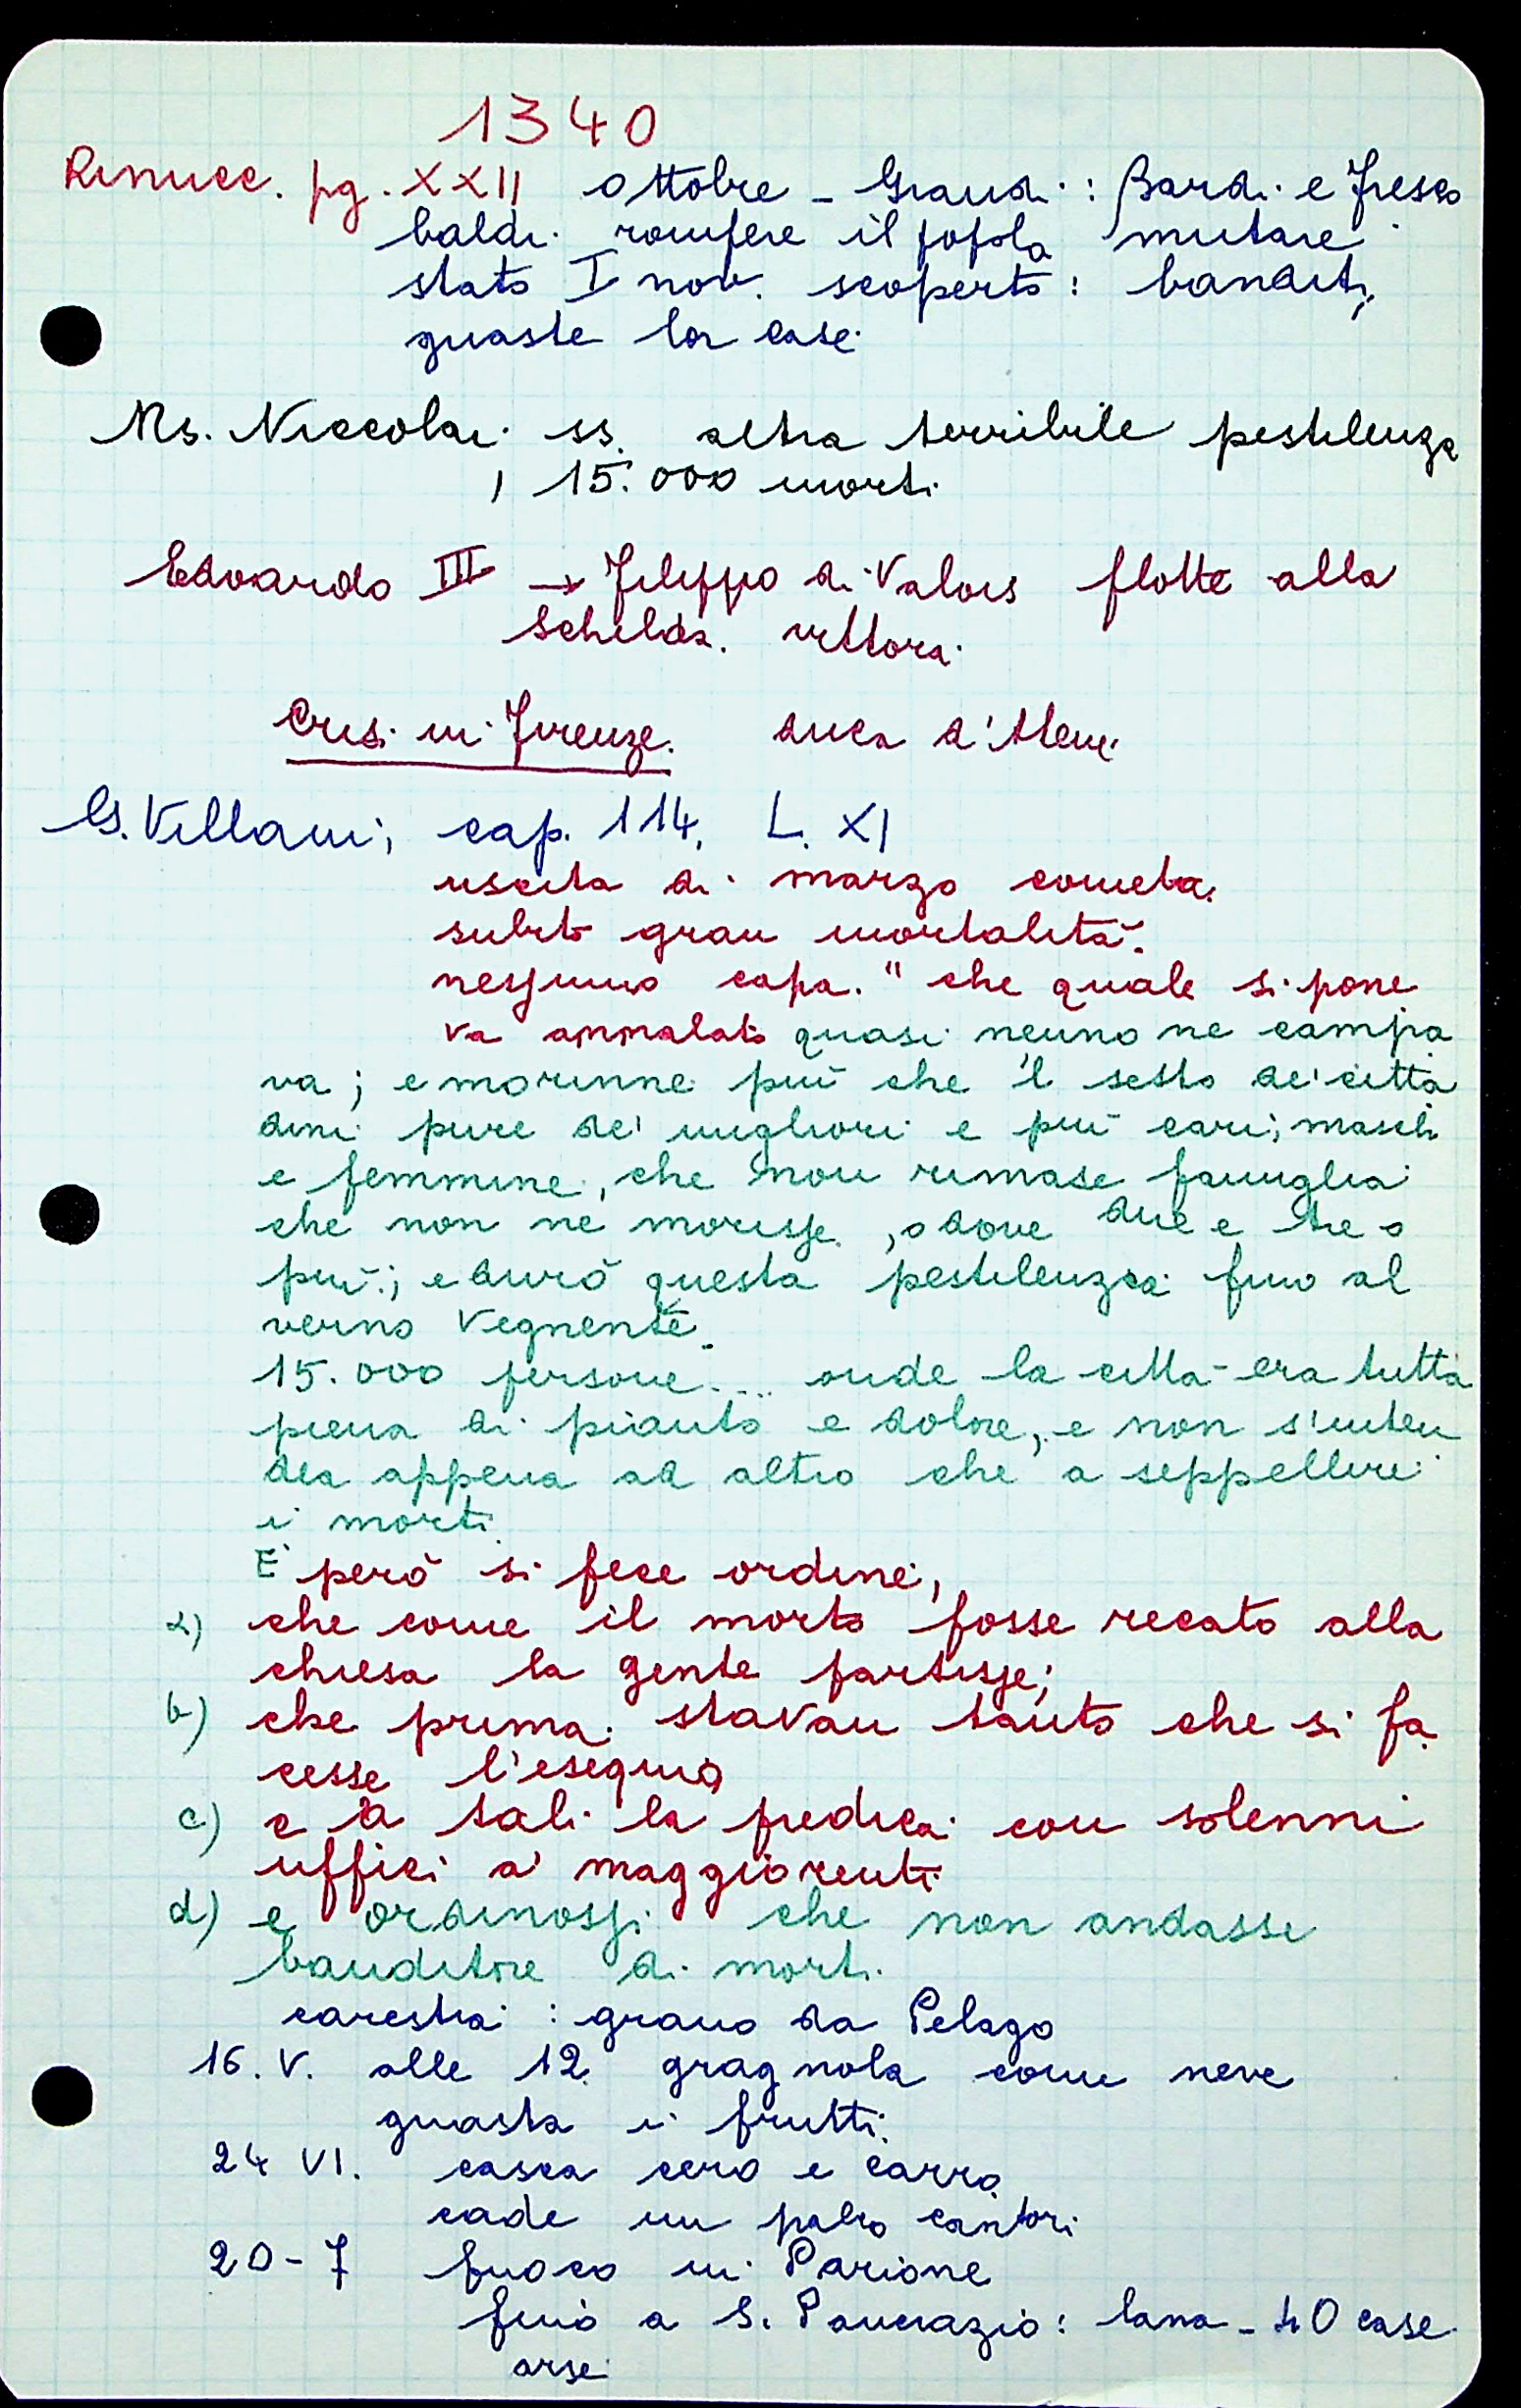 1340
Rinucc. pg. XXII ottobre - Grandi: Bardi e Fresco
baldi rompere il popolo mutare
stato I nov. scoperto: banditi,
guaste lor case.
Ms. Niccolai ss. altra terribile pestilenza
, 15.000 morti
Edoardo III → Filippo di Valois flotte alla
Schelda. vittora.
Crisi in Firenze. duca d'Atene
G. Villani, cap. 114, L. XI
uscita di marzo cometa.
subito gran mortalità.
nessuno capa. "che quale si pone
va ammalato quasi neuno ne campa
va; e morinne più che 'l sesto de' citta
dini pure de' migliori e più cari, maschi
e femmine, che non rimase famiglia
che non ne morisse, o dove due e tre o
più; e durò questa pestilenzia fino al
verno vegnente.
15.000 persone.... onde la città era tutta
piena di pianto e dolore, e non s'inten
dea appena ad altro che a seppellire
i morti
E però si fece ordine,
a) che come il morto fosse recato alla
chiesa la gente partisse;
b) che prima stavan tanto che si fa
cesse l'esequio
c) e a tali la predica con solenni
uffici a' maggiorenti
d) e ordinossi che non andasse
banditore di morti.
carestia: grano da Pelago
16. V. alle 12 gragnola come neve
guasta i frutti.
24 VI. casca cero e carro
cade un palco cantori
20-7 fuoco in Parione
fino a S. Pancrazio: lana - 40 case
arse